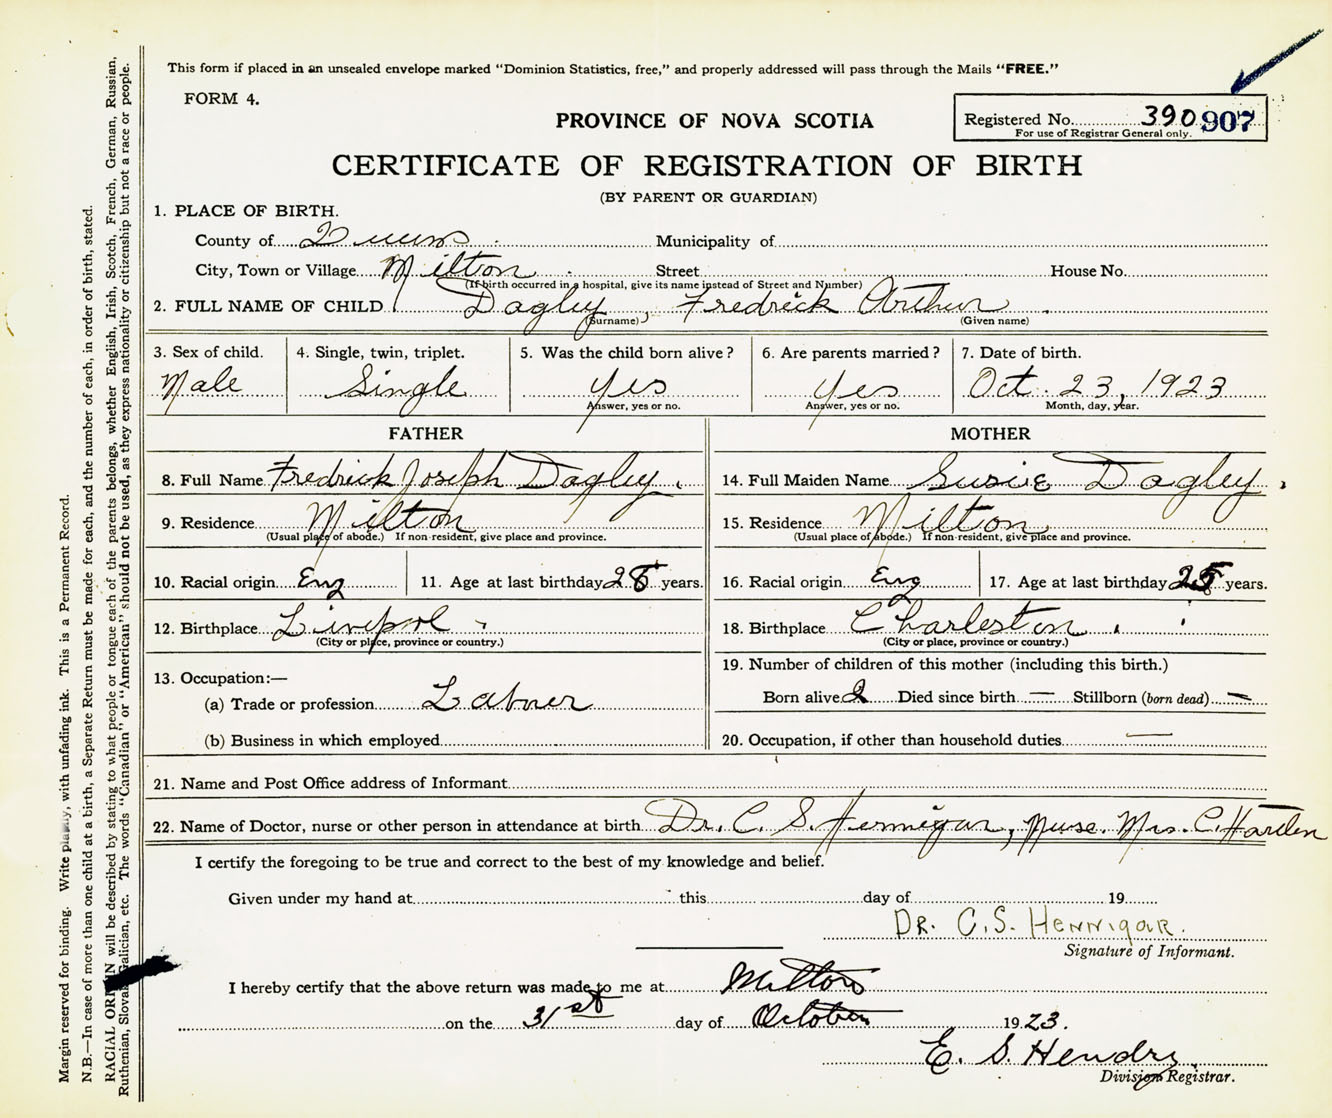 This form if placed in an unsealed envelope marked "Dominion Statistics, free," and properly addressed will pass through the Mails "FREE."
FORM 4.
Registered No. 390 907
For use of Registrar General only.
PROVINCE OF NOVA SCOTIA
CERTIFICATE OF REGISTRATION OF BIRTH
(BY PARENT OR GUARDIAN)
1. PLACE OF BIRTH.
County of Queens Municipality of
City, Town or Village Milton Street House No.
(If birth occurred in a hospital, give its name instead of Street and Number)
2. FULL NAME OF CHILD Dagley, Fredrick Arthur
(Surname) (Given name)
3. Sex of child. 4. Single, twin, triplet. 5. Was the child born alive? 6. Are parents married? 7. Date of birth.
Male Single Yes Yes Oct. 23, 1923
Answer, yes or no. Answer, yes or no. Month, day, year.
FATHER MOTHER
8. Full Name Fredrick Joseph Dagley. 14. Full Maiden Name Susie Dagley.
9. Residence Milton 15. Residence Milton
(Usual place of abode.) If non-resident, give place and province. (Usual place of abode.) If non-resident, give place and province.
10. Racial origin Eng 11. Age at last birthday 28 years. 16. Racial origin Eng 17. Age at last birthday 25 years.
12. Birthplace Liverpol 18. Birthplace Charleston
(City or place, province or country.) (City or place, province or country.)
13. Occupation:— 19. Number of children of this mother (including this birth.)
(a) Trade or profession Laborer Born alive 2 Died since birth — Stillborn (born dead) —
(b) Business in which employed 20. Occupation, if other than household duties —
21. Name and Post Office address of Informant
22. Name of Doctor, nurse or other person in attendance at birth Dr. C. S. Hennigar, Nurse. Mrs. C. Harden
I certify the foregoing to be true and correct to the best of my knowledge and belief.
Given under my hand at this day of 19
DR. C. S. HENNIGAR.
Signature of Informant.
I hereby certify that the above return was made to me at Milton
on the 31st day of October 1923.
E. S. Hendry
Division Registrar.
Margin reserved for binding. Write plainly, with unfading ink. This is a Permanent Record.
N.B.—In case of more than one child at a birth, a Separate Return must be made for each, and the number of each, in order of birth, stated.
RACIAL ORIGIN will be described by stating to what people or tongue each of the parents belongs, whether English, Irish, Scotch, French, German, Russian,
Ruthenian, Slovak, Galician, etc. The words "Canadian" or "American" should not be used, as they express nationality or citizenship but not a race or people.